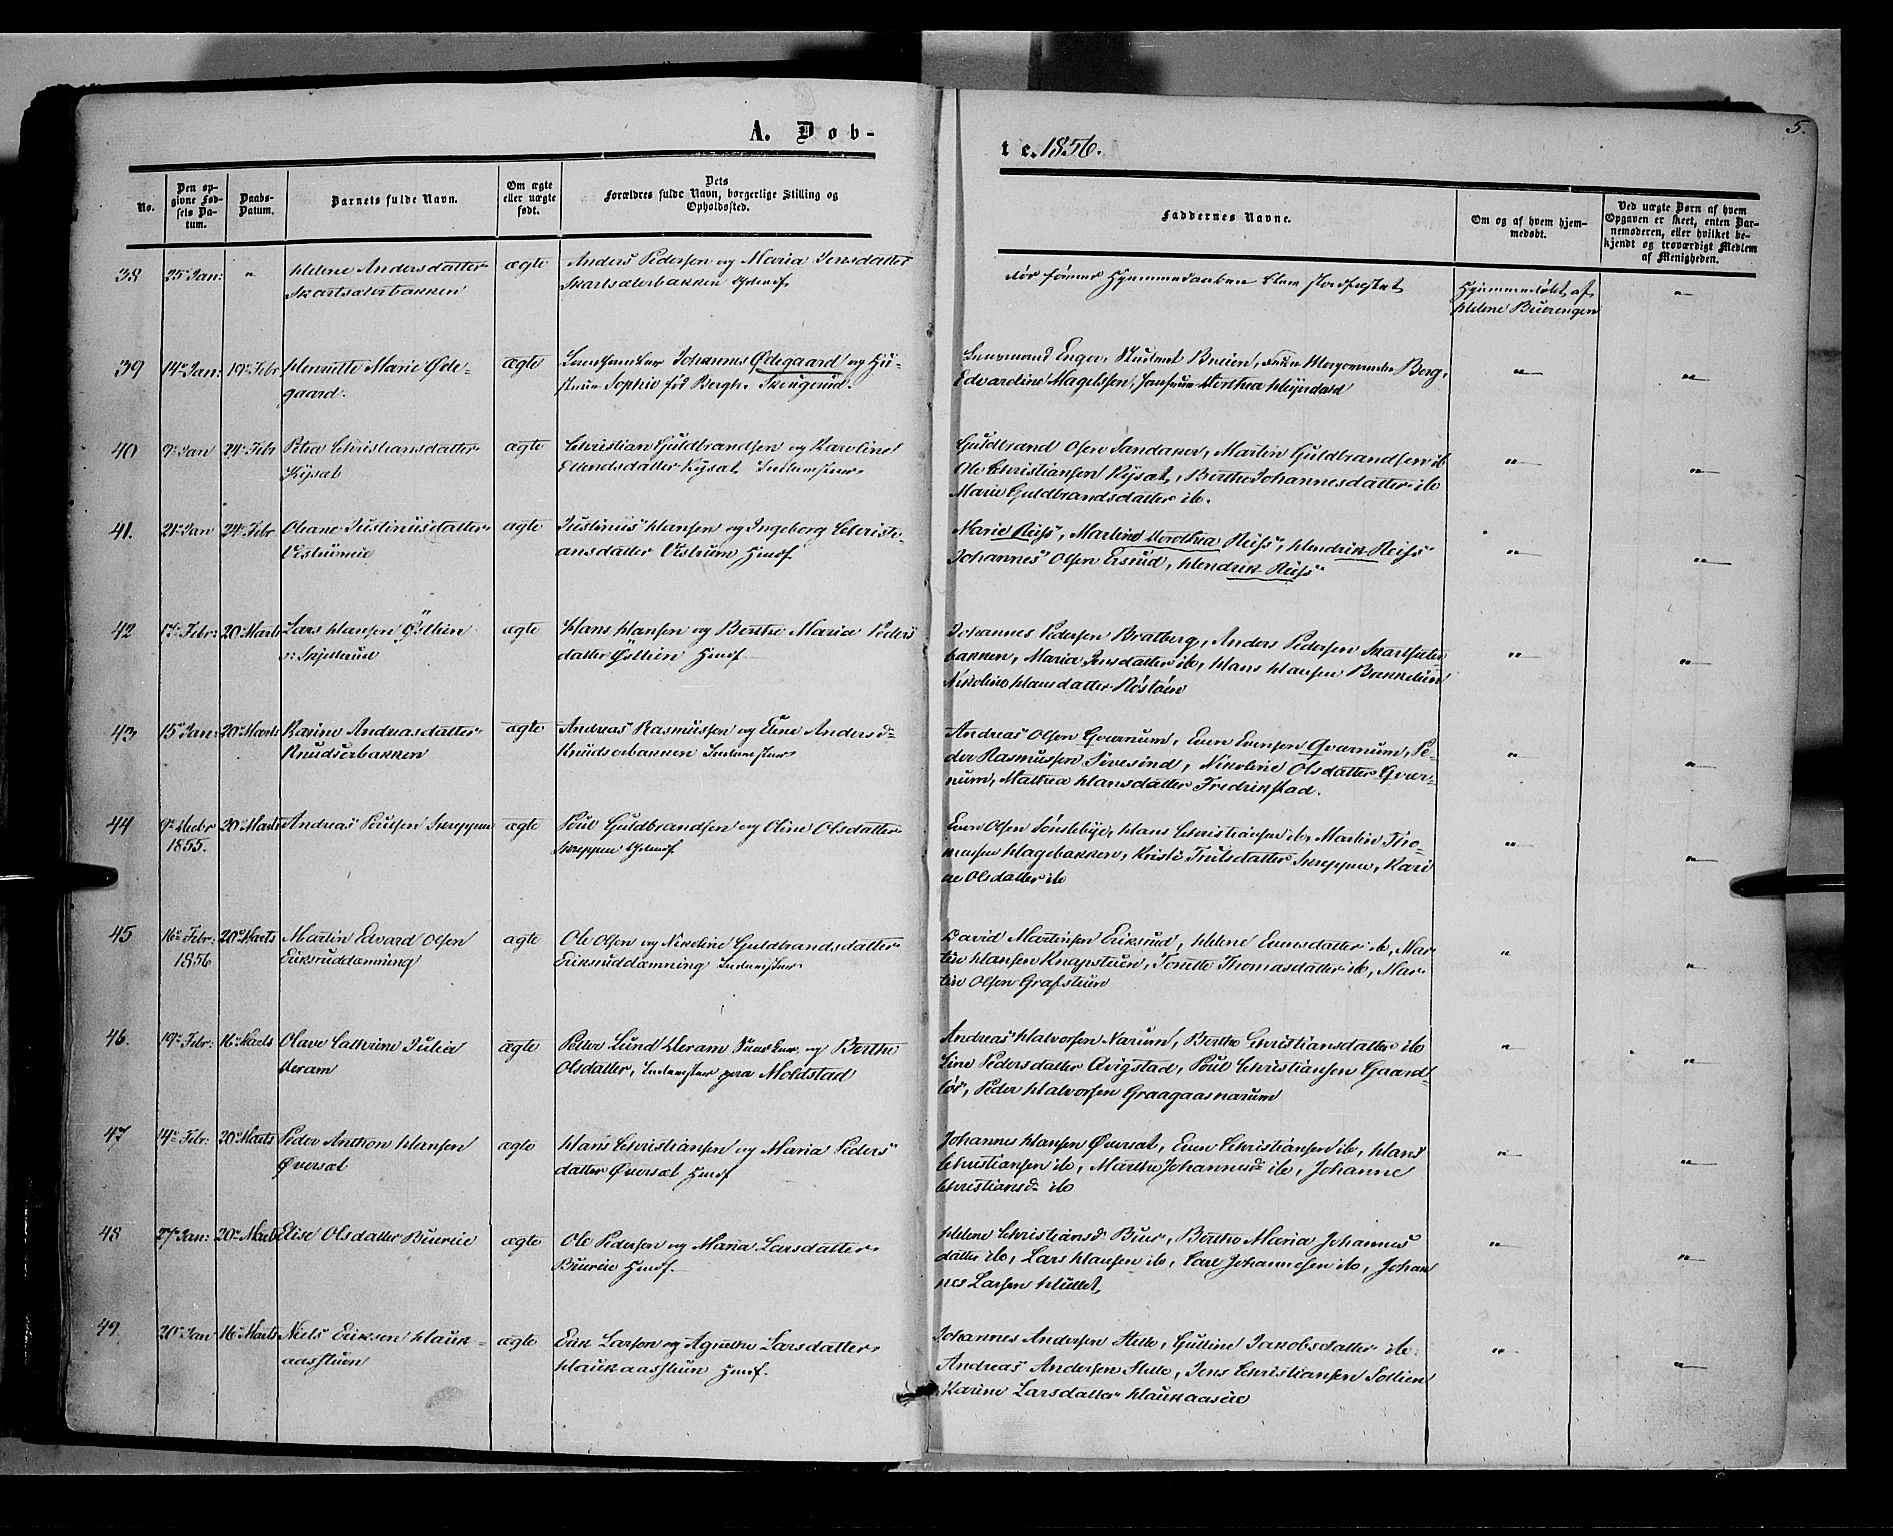 A. Døb-
te. 1856.
5.
No.
Den op-
givne Fød-
sels Da-
tum.
Daabs-
Datum.
Barnets fulde Navn.
Om ægte
eller uægte
født.
Dets
Forældres fulde Navn, borgerlige Stilling og
Opholdssted.
Faddernes Navne.
Om og af hvem hjem-
medøbt.
Ved uægte Børn af hvem
Opgaven er skeet, enten Bar-
nemoderen, eller hvilket be-
kjendt og troværdigt Medlem
af Menigheden.
38 25 Jan: " Helene Andersdatter ægte Anders Pedersen og Maria Jensdatter
før Hjemmedaaben blev stadfæstet Hjemmedøbt af "
Helene Buerengen
39 14 Jan: 19 Febr Henriette Marie Øde- ægte Johannes Ødegaard og Hu-
gaard. strue Sophie fød Bergh. Skeugerud.
Enger, Student Breien, Berg, " "
Edvardine Magelssen, Jomfrue Dorthea Heyerdahl
40 9 Jan 24 Febr Petra Christiansdatter ægte Christian Guldbrandsen og Karoline
Rÿsat Erlendsdatter Rÿsat Inderster
Guldbrand Olsen Sandager, Martin Guldbrandsen ib " "
Ole Christiansen Rÿsat, Berthe Johannesdatter ib
Marie Guldbrandsdatter ib.
41. 21 Jan 24 Febr Oleane Justinusdatter ægte Justinus Hansen og Ingeborg Christi-
Vestrumeie ansdatter Vestrum Hmd.
Marie Reiss, Martine Dorothea Reiss, Hendrik Reiss " "
Johannes Olsen Ersrud, Hendrik Reiss
42 17 Febr: 20 Marts Lars Hansen Østlien ægte Hans Hansen og Berthe Maria Peders
datter Østlien Hmd.
Johannes Pedersen Bratberg, Anders Pedersen " "
bakken, Maria Jensdatter ib, Hans Hansen
Nikoline Hansdatter Røstøen
43 15 Jan: 20 Marts Karine Andreasdatter ægte Andreas Rasmussen og Eline Andersd
Knudserbakken Knudserbakken Inderster
Andreas Olsen Qværnum, Even Evensen Qværnum, Pe- " "
der Rasmussen Sivesind, Nikoline Olsdatter Qvær-
num, Mathea Hansdatter Fredrikstad.
44 9 Decbr 20 Marts Andreas Poulsen Skreppen ægte Poul Guldbrandsen og Oline Olsdatter
1855. Skreppen
Even Olsen Sønsteby, Hans Christiansen ib, Martin Tho- " "
massen Hagebakken, Kristi Trulsdatter Skreppen, Kari
ne Olsdatter ib
45 16 Febr: 20 Marts Martin Edvard Olsen ægte Ole Olsen og Nikoline Guldbrandsdatter
1856 Eriksruddæmning Eriksruddæmning Inderster
David Martinsen Eriksrud, Helene Evensdatter ib, Mar- " "
tin Hansen Knapstuen, Tonette Thomasdatter ib, Mar-
tin Olsen Grafstuen
46. 19 Febr: 16 Marts Olave Cathrine Julia ægte Peter Lund Heram og Berthe
Heram Olsdatter, Inderster paa Moldstad
Andreas Halvorsen Narum, Berthe Christiansdatter ib " "
Line Pedersdatter Qvigstad, Poul Christiansen Gaard-
løs, Peder Halvorsen Graagaasnarum
47 14 Febr: 20 Marts Peder Anthon Hansen ægte Hans Christiansen og Maria Peders
Øversæt datter Øversæt Hmd
Johannes Hansen Øversæt, Even Christiansen ib, Hans " "
Christiansen ib, Marthe Johannesd ib, Johanne
Christiansd ib
48 27 Jan: 20 Marts Elise Olsdatter Bueeie ægte Ole Pedersen og Maria Larsdatter
Bueeie Hmd.
Helene Christiansd Bue, Berthe Maria Johannes " "
datter ib, Lars Hansen ib, Carl Johannesen ib, Johan
nes Larsen Hullet,
49. 20 Jan 16 Marts Niels Eriksen Hauk- ægte Erik Larsen og Agnethe Larsdatter
aasstuen Haukaasstuen Hmd.
Johannes Andersen Helle, Guline Jakobsdatter ib. " "
Andreas Andersen Helle, Jens Christiansen Sollien
Karine Larsdatter Haukaaseie